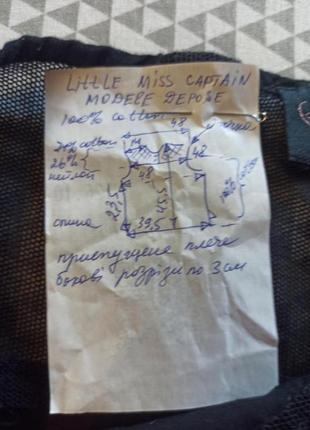 LittLE MISS CAPTAIN
MODELE DEPOSE
100% cotton
48
74% cotton
14
26%
48
нейлон
48
23,5
45,5
100% cotton
спина
39,5
приспущене плече
бокові розрізи по 3 см